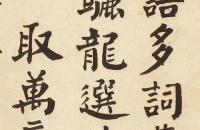 語多詞
驪龍選
取萬